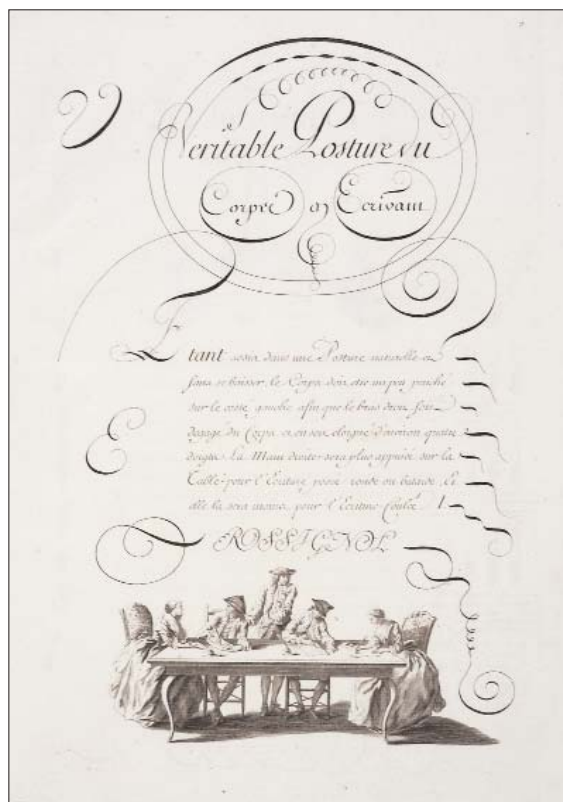 Veritable Posture du
Corps en Ecrivant
Etant assis dans une Posture naturelle et
sans se baisser, le Corps doit etre un peu panché
sur le costé gauche afin que le bras droit soit
degagé du Corps et en soit eloigné d'environ quatre
doigts. La Main droite sera plus appuiée sur la
Table pour l'Ecriture posée ronde ou batarde, Et
elle la sera moins pour l'Ecriture Coulée.
ROSSIGNOL